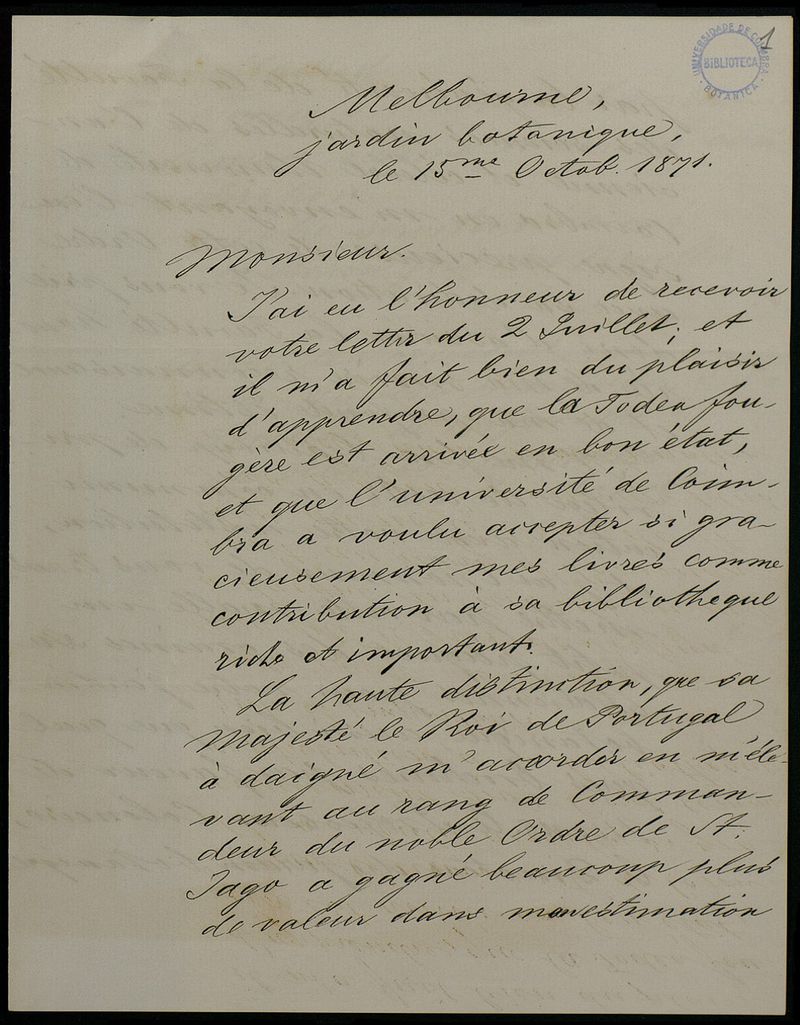 1
UNIVERSIDADE DE COIMBRA
BIBLIOTECA
BOTANICA
Melbourne,
jardin botanique,
le 15me Octob. 1871.
Monsieur.
J'ai eu l'honneur de recevoir
votre lettre du 2 Juillet; et
il m'a fait bien du plaisir
d'apprendre, que la Todea fou-
gère est arrivée en bon état,
et que l'université de Coim-
bra a voulu accepter si gra-
cieusement mes livres comme
contribution à sa bibliotheque
riche et important.
La haute distinction, que sa
Majesté le Roi de Portugal
à daigné m'accorder en m'éle-
vant au rang de Comman-
deur du noble Ordre de St.
Jago a gagné beaucoup plus
de valeur dans mon estimation